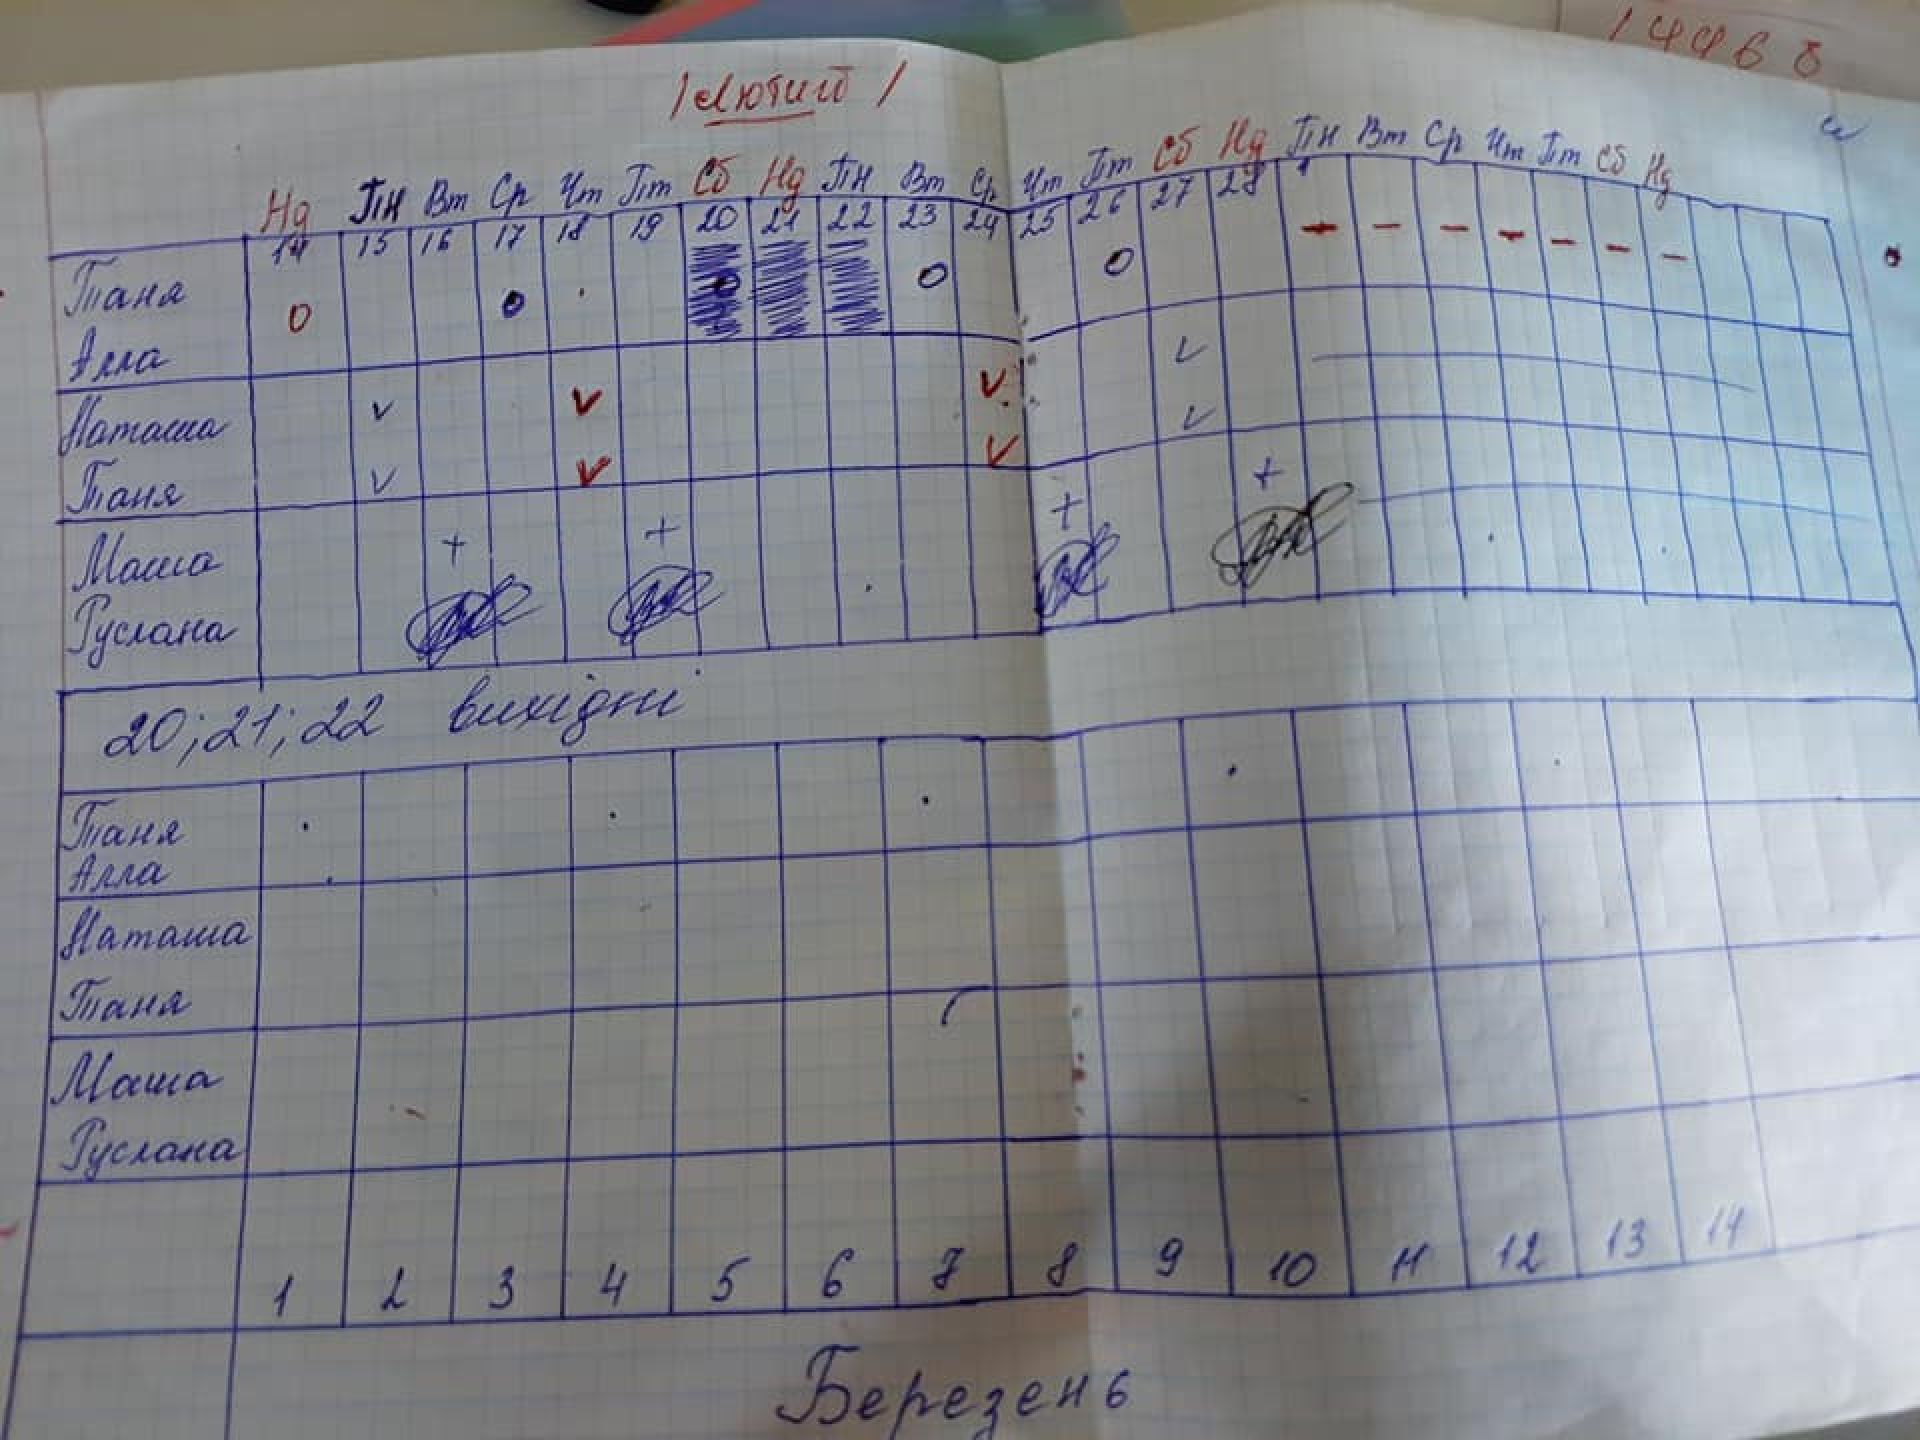 14468
/Лютий/
Нд Пн Вт Ср Чт Пт Сб Нд Пн Вт Ср Чт Пт Сб Нд Пн Вт Ср Чт Пт Сб Нд
14 15 16 17 18 19 20 21 22 23 24 25 26 27 28 1
Таня О О О О О - - - - - - -
Алла
Наташа v v v v
Таня v v v v
Маша + + + +
Руслана
20; 21; 22 вихідні
Таня
Алла
Наташа
Таня
Маша
Руслана
1 2 3 4 5 6 7 8 9 10 11 12 13 14
Березень